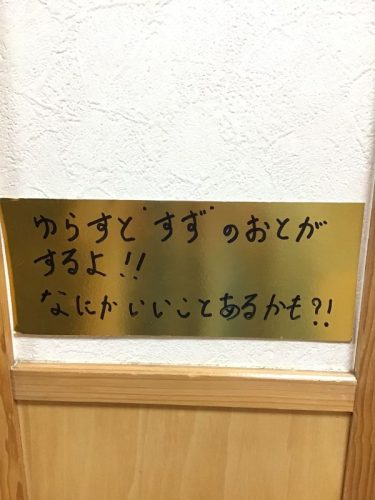 ゆらすと"すず"のおとが
するよ!!
なにかいいことあるかも?!